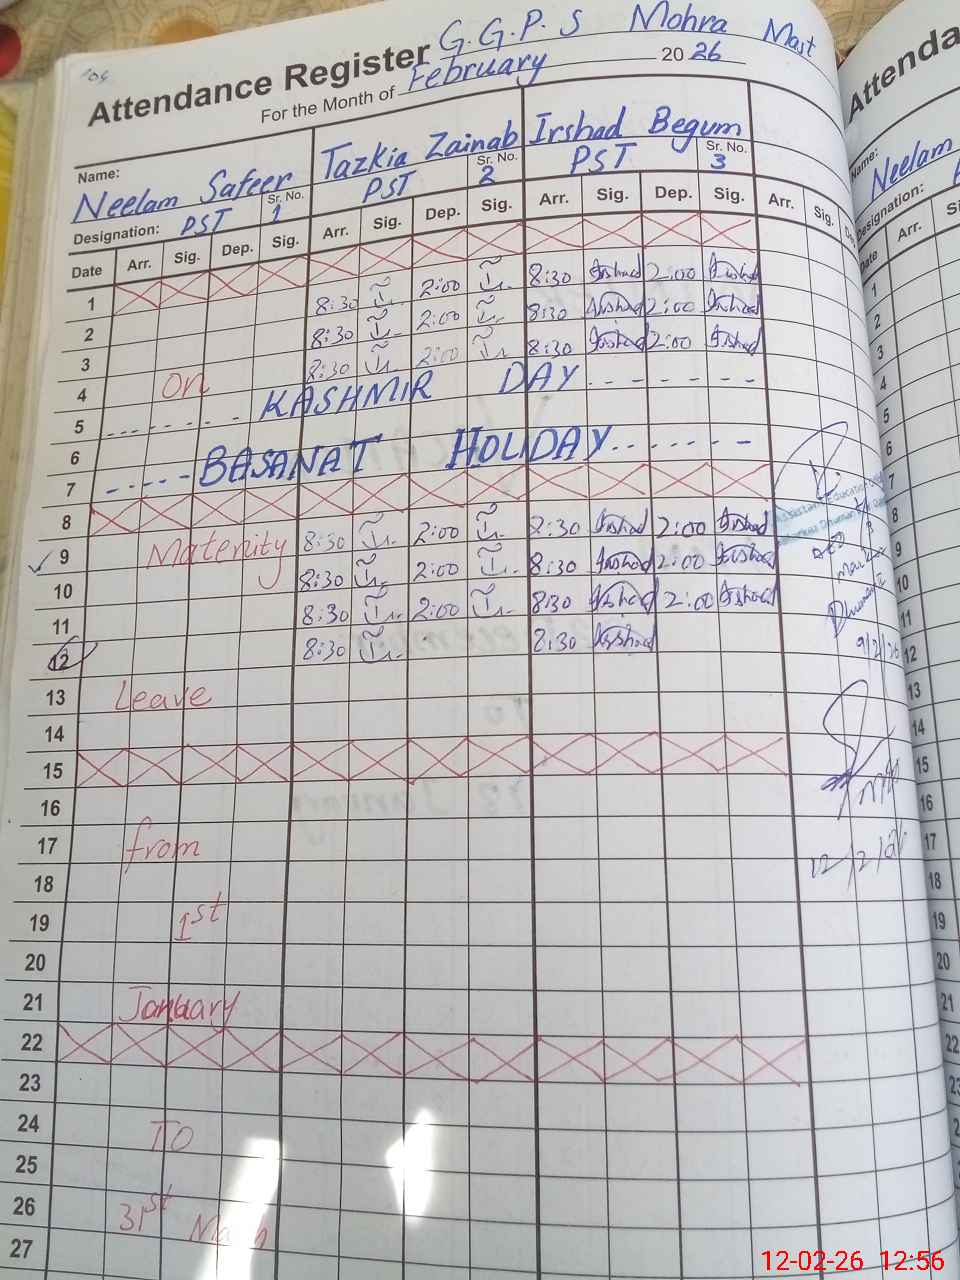 Attendance Register G.G.P.S Mohra Mast
For the Month of February 2026
Name: Neelam Safeer Tazkia Zainab Irshad Begum
Designation: PST Sr. No. 1 PST Sr. No. 2 PST Sr. No. 3
Date Arr. Sig. Dep. Sig. Arr. Sig. Dep. Sig. Arr. Sig. Dep. Sig. Arr. Sig.
1
2 8:30 2:00 8:30 Irshad 2:00 Irshad
3 8:30 2:00 8:30 Irshad 2:00 Irshad
4 on 8:30 2:00 8:30 Irshad 2:00 Irshad
5 KASHMIR DAY
6
7 BASANAT HOLIDAY
8
9 Maternity 8:30 2:00 8:30 Irshad 2:00 Irshad
10 8:30 2:00 8:30 Irshad 2:00 Irshad
11 8:30 2:00 8:30 Irshad 2:00 Irshad
12 8:30 8:30 Irshad
13 Leave
14
15
16
17 from
18
19 1st
20
21 January
22
23
24 TO
25
26 31st March
27
Assistant Education
9/2/26
12/2/26
Attenda
Name: Neelam
Designation:
Date Arr.
1
2
3
4
5
6
7
8
9
10
11
12
13
14
15
16
17
18
19
20
21
22
23
12-02-26 12:56